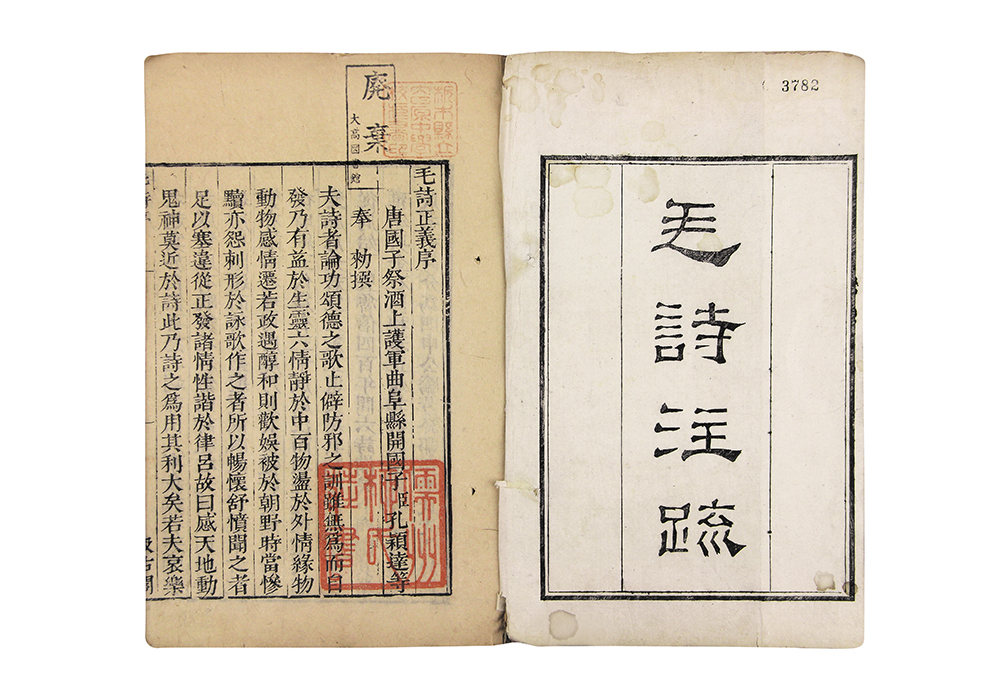 3782
毛詩注疏
廃棄
大高図書館
毛詩正義序
唐國子祭酒上護軍曲阜縣開國子臣孔穎達等
奉 勅撰
夫詩者論功頌德之歌止僻防邪之訓雖無爲而自
發乃有益於生靈六情靜於中百物盪於外情緣物
動物感情遷若政遇醇和則歡娛被於朝野時當慘
黷亦怨刺形於詠歌作之者所以暢懷舒憤聞之者
足以塞違從正發諸情性諧於律呂故曰感天地動
鬼神莫近於詩此乃詩之爲用其利大矣若夫哀樂